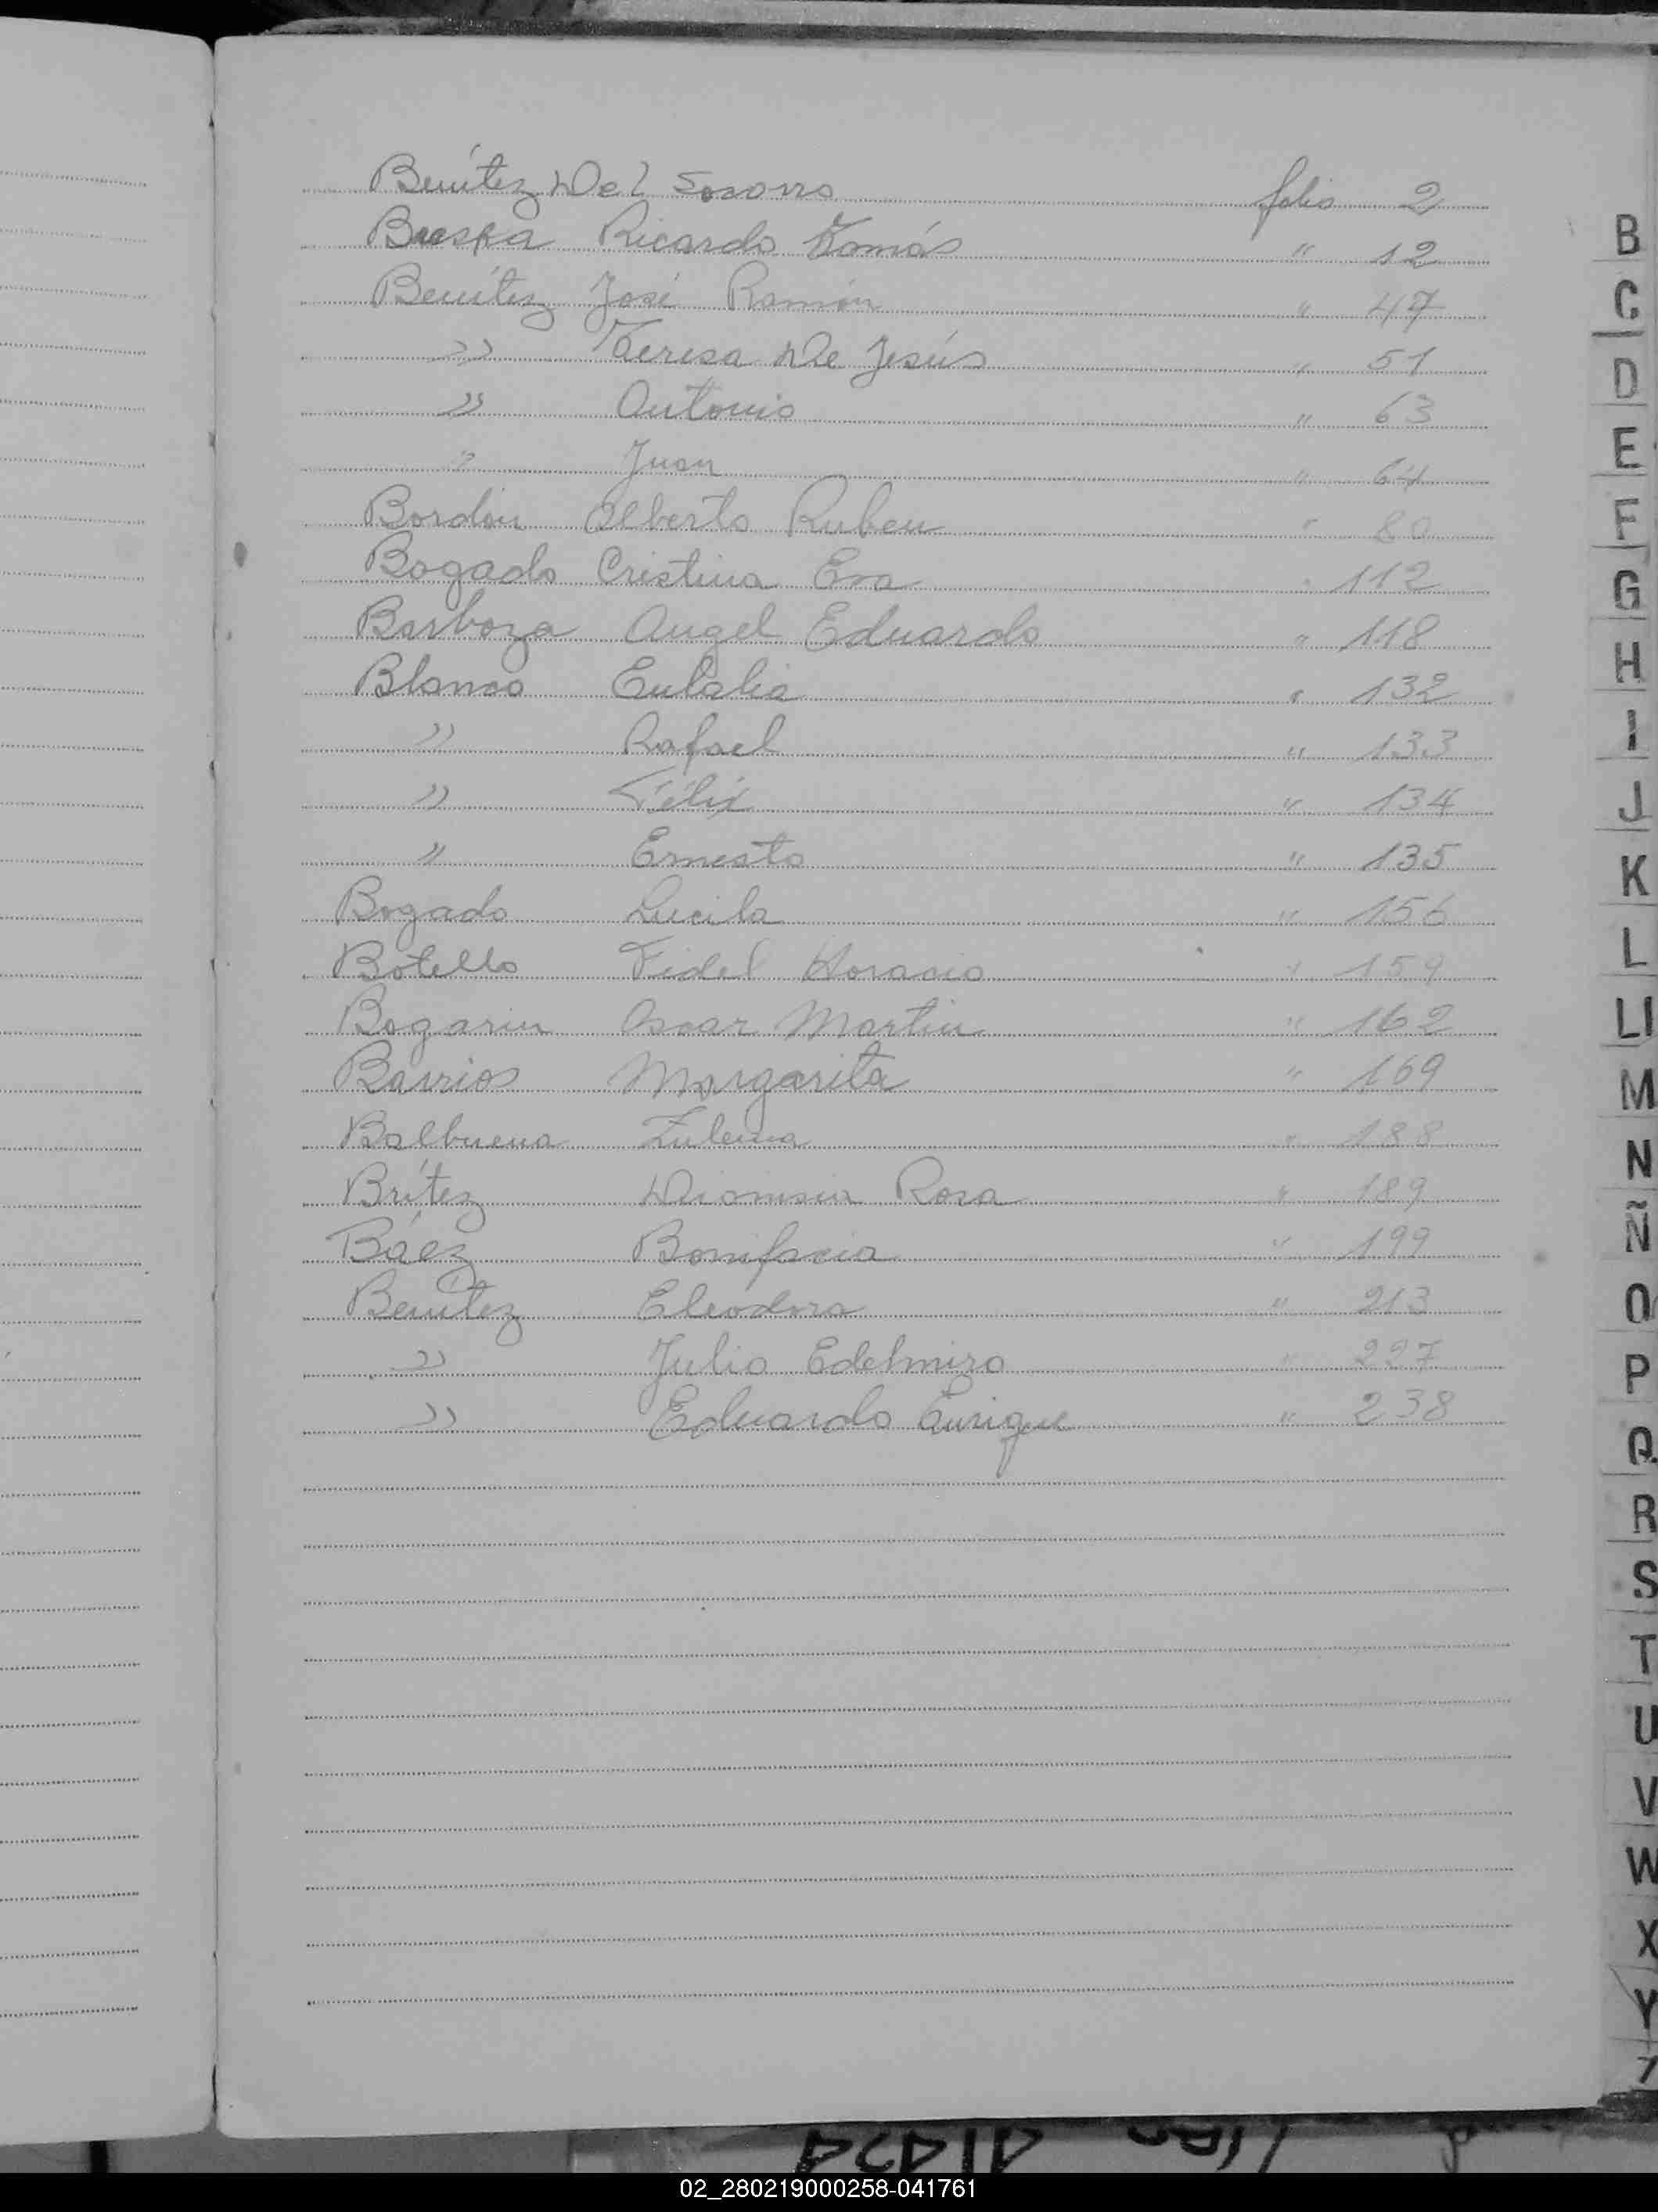 Benítez Del Socorro folio 2
Ricardo Tomás " 12
Benítez José Ramón " 47
" Teresa De Jesús " 51
" Antonio " 63
" Juan " 64
Bordón Alberto Ruben " 80
Bogado Cristina Eva " 112
Barboza Angel Eduardo " 118
Blanco Eulalia " 132
" Rafael " 133
" Félix " 134
" Ernesto " 135
Bogado Lucila " 156
Botello Fidel Horacio " 159
Bogarin Oscar Martin " 162
Barrios Margarita " 169
Balbuena Zulema " 188
Brítez Dionisia Rosa " 189
Báez Bonifacia " 199
Benítez Eleodora " 213
" Julio Edelmiro " 227
" Eduardo Enrique " 238
B
C
D
E
F
G
H
I
J
K
L
Ll
M
N
Ñ
O
P
Q
R
S
T
U
V
W
X
Y
Z
02_280219000258-041761